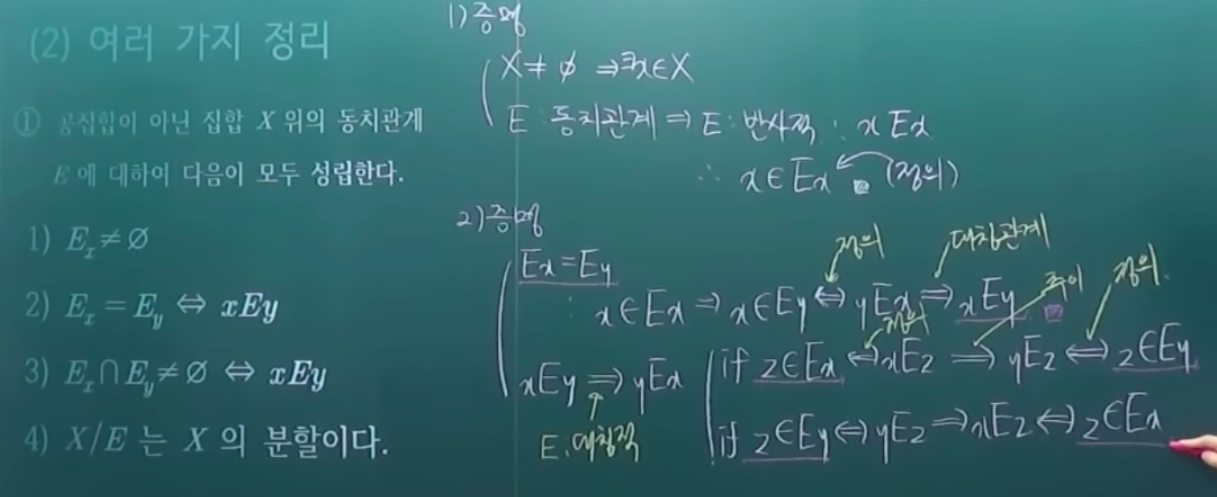 (2) 여러 가지 정리
① 공집합이 아닌 집합 X 위의 동치관계
E 에 대하여 다음이 모두 성립한다.
1) Eₓ ≠ ∅
2) Eₓ = E_y ⇔ xEy
3) Eₓ ∩ E_y ≠ ∅ ⇔ xEy
4) X/E 는 X 의 분할이다.
1) 증명
X ≠ ∅ ⇒ ∃x∈X
E 동치관계 ⇒ E : 반사적 : xEx
∴ x∈Eₓ (정의)
2) 증명
Eₓ = E_y
정의 대칭관계 추이 정의
∴ x∈Eₓ ⇒ x∈E_y ⇔ yEx ⇒ xEy
정의
xEy ⇒ yEx
E. 대칭적
if z∈Eₓ ⇔ xEz ⇒ yEz ⇔ z∈E_y
if z∈E_y ⇔ yEz ⇒ xEz ⇔ z∈Eₓ